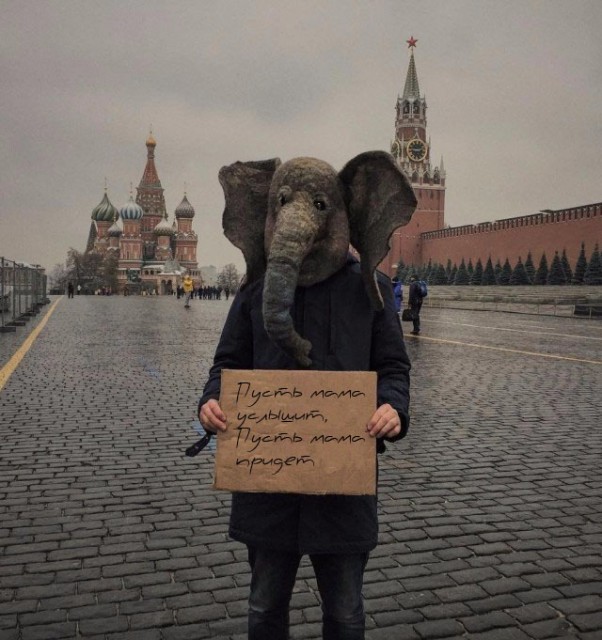 Пусть мама
услышит,
Пусть мама
придет